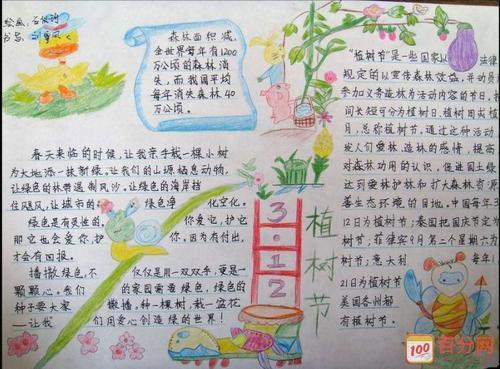 绘画:
书写:
森林面积减
全世界每年有1200
万公顷的森林消
失,而我国平均
每年消失森林40
万公顷。
春天来临的时候,让我亲手栽一棵小树
为大地添一抹新绿。让我们的山埸栖息动物,
让绿色的林带遏制风沙,让绿色的海岸挡
住飓风,让城市的绿色净化空化。
绿色是有灵性的,你爱它,护它
那它也会爱你,护你,因为有付出,
才会有回报。
播撒绿色,不仅仅是一双双手,更是一
颗颗心。我们的家园需要绿色,绿色的
种子要大家撒播,种一棵树,栽一盆花
——让我们用爱心创造绿的世界!
3·12
植树节
“植树节”是一些国家以法律
规定的以宣传森林效益,并动员
参加义务造林为活动内容的节日,
间长短可分为植树日,植树周或植
月,总称植树节,通过这种活动
发人们爱林、造林的感情,提高
对森林功用的认识,促进国土绿
达到爱林护林和扩大森林资源
善生态环境的目地。中国每年3
12日为植树节;泰国把国庆节定
树节;菲律宾9月第二个星期六为
树节;意大利每年1
21日为植树节
美国各州都
有植树节。
100
百分网